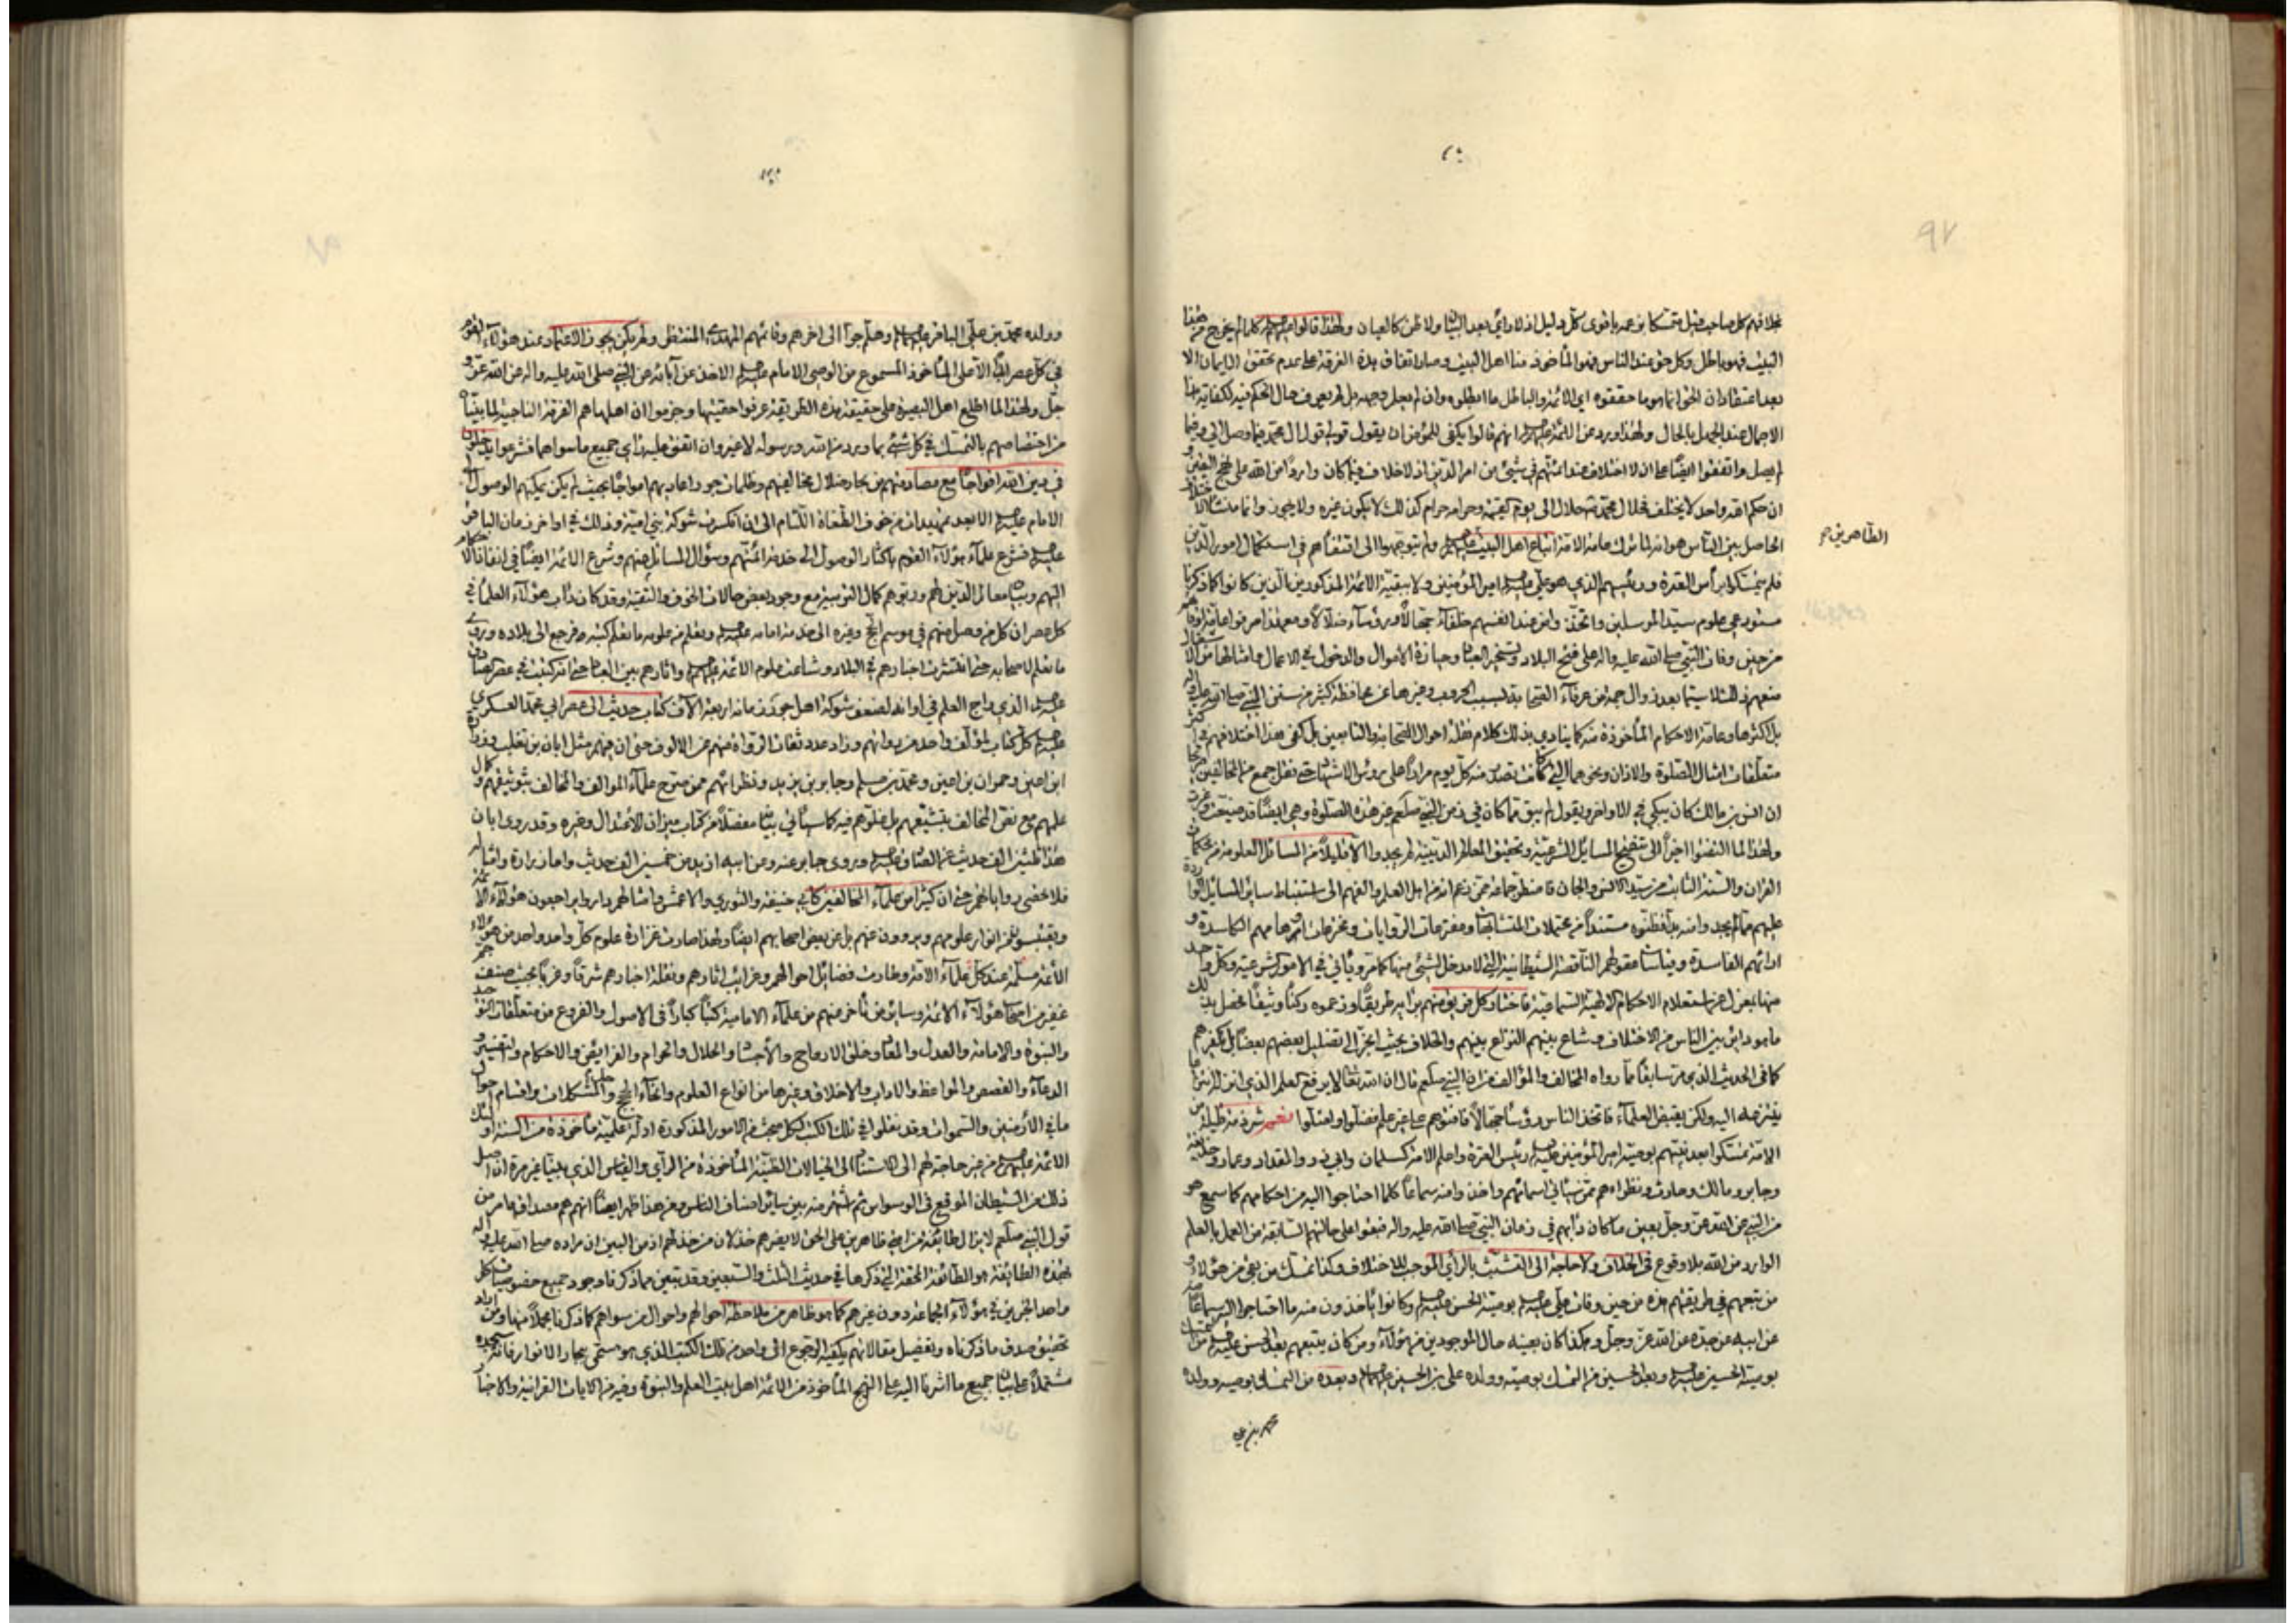 ٩٧
بخلافهم كل صاحب
البيت فهو باطل وكل حق عند الناس فهو المأخوذ منا اهل البيت وصار اتفاق هذه الفرقة على عدم تحقق الايمان الا
بعد اعتقاد ان الحق انما هو ما حققوه اي الائمة والباطل ما ابطلوه وان لم يعلم وجهه بل لم يعرف حال الحكم فيه لكفاية هذا
الاجمال عند الجهل بالحال ولهذا ورد عن الائمة عليهم السلام انهم قالوا يكفي للمؤمن ان يقول قولي قول ال محمد فيما وصل الي وفيما
لم يصل واتفقوا ايضا على ان لا اختلاف عند ائمتهم في شيء من امر الدين اذ لا خلاف فيما كان واردا من الله على نهج اليقين و
ان حكم الله واحد لا يختلف فحلال محمد حلال الى يوم القيمة وحرامه حرام كذلك لا يكون غيره ولا يجيء وانما منشأ الاختلاف
الحاصل بين الناس هو انه لما ترك عامة الامة اتباع اهل البيت عليهم السلام ولم يتوجهوا الى اقتفائهم في استكمال امور الدين
الطاهرين صح
فلم يتمسكوا برأس العترة ورئيسهم الذي هو علي عليه السلام امير المؤمنين ولا ببقية الائمة المذكورين الذين كانوا كما ذكرنا
مستودعي علوم سيد المرسلين واتخذوا من عند انفسهم خلفاء جهالا ورؤساء ضلالا ومع هذا صرفوا عامة اوقاتهم
من حين وفات النبي صلى الله عليه واله على فتح البلاد وتسخير العباد وحيازة الاموال والدخول في الاعمال وامثالها من الاشتغال
منعهم ذلك لا سيما بعد زوال جمع من عرفاء الصحابة بسبب الحروب وغيرها عن محافظة كثير من سنن النبي صلى الله عليه واله
بل اكثرها وعامة الاحكام المأخوذة منه كما ينادي بذلك كلام نقلة احوال الصحابة والتابعين بل كفى بهذا اختلافهم في اكثر
متعلقات امثال الصلوة والاذان ونحوهما التي كانت تصدر منه كل يوم مرارا على رؤس الاشهاد حتى نقل جمع من المخالفين
ان انس بن مالك كان يبكي في الاواخر ويقول لم يبق مما كان في زمن النبي صلعم غير هذه الصلوة وهي ايضا قد ضيعت
ولهذا لما التفتوا اخرا الى تنقيح المسائل الشرعية وتحقيق المعالم الدينية لم يجدوا الا قليلا من المسائل المعلومة من محكمات
القران والسنة الثابت من سيد الانس والجان فاضطر جماعة ممن زعم انه من اهل العلم والفهم الى استنباط سائر المسائل الواردة
عليهم مما لم يجدوا منه بدا مستندا من محتملات المتشابهات ومفتريات الروايات ومخترعات اوهامهم الكاسدة و
ارائهم الفاسدة وقياسات عقولهم الناقصة الشيطانية التي لا مدخل لشيء منها كما مر ويأتي في الامور الشرعية وكل واحد
منها بمعزل عن استعلام الاحكام الالهية السماوية فاختار كل فريق منهم برايه طريقا وزعموه ركنا وثيقا فحصل بذلك
ما بدا بين الناس من الاختلاف وشاع بينهم النزاع بينهم والخلاف بحيث انجر الى تضليل بعضهم بعضا بل تكفيرهم
كما في الحديث الذي مر سابقا مما رواه المخالف والمؤالف من ان النبي صلعم قال ان الله تعالى لا يرفع العلم الذي انزله بان
ينتزعه اليه ولكن يقبض العلماء فاتخذ الناس رؤسا جهالا فافتوهم على غير علم فضلوا واضلوا نعم شرذمة قليلة من
الامة تمسكوا بعد نبيهم بوصية امير المؤمنين عليه السلام رئيس العترة واعلم الامة كسلمان وابي ذر والمقداد وعمار وحذيفة
وجابر ومالك وحارث ونظراءهم ممن سيأتي اسمائهم واخذوا منه سماعا كلما احتاجوا اليه من احكامهم كما سمع هو
من النبي عن الله عز وجل بعين ما كان دأبهم في زمان النبي صلى الله عليه واله فبقوا على حالتهم السابقة من العمل بالعلم
الوارد من الله بلا وقوع في الخلاف ولا حاجة الى التشبث بالرأي الموجب للاختلاف وكذا تمسك من بقي من هؤلاء و
من تبعهم في طريقتهم هذه من حين وفات علي عليه السلام بوصية الحسن عليه السلام وكانوا يأخذون منه ما احتاجوا اليه سماعا
عن ابيه عن جده عن الله عز وجل وهكذا كان بعينه حال الموجودين من هؤلاء ومن كان يتبعهم بعد الحسن عليه السلام من التمسك
بوصية الحسين عليه السلام وبعد الحسين من التمسك بوصيه وولده علي بن الحسين عليهما السلام وبعده من التمسك بوصيه وولده
محمد بن علي
وولده محمد بن علي الباقر عليهما السلام وهلم جرا الى اخرهم وقائمهم المهدي المنتظر ولم يكن يجوز الاعتماد عند هؤلاء القوم
في كل عصر ابدا الا على المأخوذ المسموع من الوصي الامام عليه السلام الاخذ عن آبائه عن النبي صلى الله عليه واله عن الله عز و
جل ولهذا لما اطلع اهل البصيرة على حقيقة هذه الطريقة عرفوا حقيتها وجزموا ان اهلها هم الفرقة الناجية لما بينا
من اختصاصهم بالتمسك في كل شيء بما ورد من الله ورسوله لا غير وان اتفق عليه راي جميع ما سواهما فشرعوا يدخلون
في دين الله افواجا مع مصادمتهم من بحار ضلال مخالفيهم وظلمات جور اعاديهم امواجا بحيث لم يكن يمكنهم الوصول الى
الامام عليه السلام الا بعد تمهيدات من خوف الطغاة اللئام الى ان انكسرت شوكة بني امية وذلك في اواخر زمان الباقر
عليه السلام فشرع علماء هؤلاء القوم باكثار الوصول الى خدمة ائمتهم وسؤال المسائل عنهم وشرع الائمة ايضا في انفاذ الاحكام
اليهم وبيان معالم الدين لهم وربوهم كمال التربية مع وجود بعض حالات الخوف والتقية وقد كان دأب هؤلاء العلماء في
كل عصر ان كل من وصل منهم في موسم الحج وغيره الى خدمة امامه عليه السلام وتعلم من علومه ما تعلم كتبه ورجع الى بلاده وروى
ما تعلم لاصحابه حتى انتشرت اخبارهم في البلاد وشاعت علوم الائمة عليهم السلام واثارهم بين العباد حتى انه كتبت في عصر الصادق
عليه السلام الذي راج العلم في اوانه لضعف شوكة اهل جور زمانه اربعة الآف كتاب حديث الى عصر ابي محمد العسكري
عليه السلام كل كتاب لمؤلف واحد من رواتهم وزاد عدد ثقات الرواة منهم عن الالوف حتى ان منهم مثل ابان بن تغلب وزرارة
ابن اعين وحمران بن اعين ومحمد بن مسلم وجابر بن يزيد ونظرائهم ممن صرح علماء المؤالف والمخالف بتوثيقهم وكمال
علمهم مع نقل المخالف بتشيعهم بل غلوهم فيه كما سيأتي بيانه مفصلا من كتاب ميزان الاعتدال وغيره وقد روى ابان
هذا ثلثين الف حديث عن الصادق عليه السلام وروى جابر عنه وعن ابيه ازيد من خمسين الف حديث واما زرارة وامثاله
فلا تحصى رواياتهم حتى ان كثيرا من علماء المخالفين كابي حنيفة والثوري والاعمش وامثالهم داروا يراجعون هؤلاء الائمة
ويقتبسون من انوار علومهم ويروون عنهم بل عن بعض اصحابهم ايضا ولهذا صارت غزارة علوم كل واحد واحد من هؤلاء
الائمة مسلمة عند كل علماء الامة وطارت فضائل احوالهم وغرائب اثارهم ونقلة اخبارهم شرقا وغربا بحيث صنف جم
غفير من اصحاب هؤلاء الائمة وسائر من تأخر منهم من علماء الامامية كتبا كبارا في الاصول والفروع من متعلقات التوحيد
والنبوة والامامة والعدل والمعاد وخلق الارواح والاجساد والحلال والحرام والفرائض والاحكام والتفسير و
الدعاء والقصص والمواعظ والاداب والاخلاق وغيرها من انواع العلوم وانحاء الحج وحل المشكلات واقسام احوال
ما في الارضين والسموات وقد نقلوا في تلك الكتب لكل مبحث من الامور المذكورة ادلة علمية مأخوذة من السنة اولئك
الائمة عليهم السلام من غير حاجة لهم الى الاستناد الى الخيالات الظنية المأخوذة من الرأي والقياس الذي بينا غير مرة ان اصل
ذلك من الشيطان الموقع في الوسواس ثم منه بين سائر اصناف الناس ومن هذا ظهر ايضا انهم هم مصداق ما مر من
قول النبي صلعم لا يزال طائفة من امتي ظاهرين على الحق لا يضرهم خذلان من خذلهم اذ من البين ان مراده صلى الله عليه واله
بهذه الطائفة هو الطائفة المحقة التي ذكرها في حديث الثلث والسبعين وقد تبين مما ذكرنا وجود جميع خصوصيات كل
واحد الخبرين في هؤلاء الجماعة دون غيرهم كما هو ظاهر من ملاحظة احوالهم واحوال من سواهم كما ذكرنا مجملا منها ومن اراد
تحقيق صدق ما ذكرناه وتفصيل مقالاتهم يكفيه الرجوع الى واحد من تلك الكتب الذي هو مسمى ببحار الانوار فانه يجده
مشتملا على بيان جميع ما اشرنا اليه على النهج المأخوذ من الائمة اهل بيت العلم والنبوة وغيره من الايات القرانية والاخبار